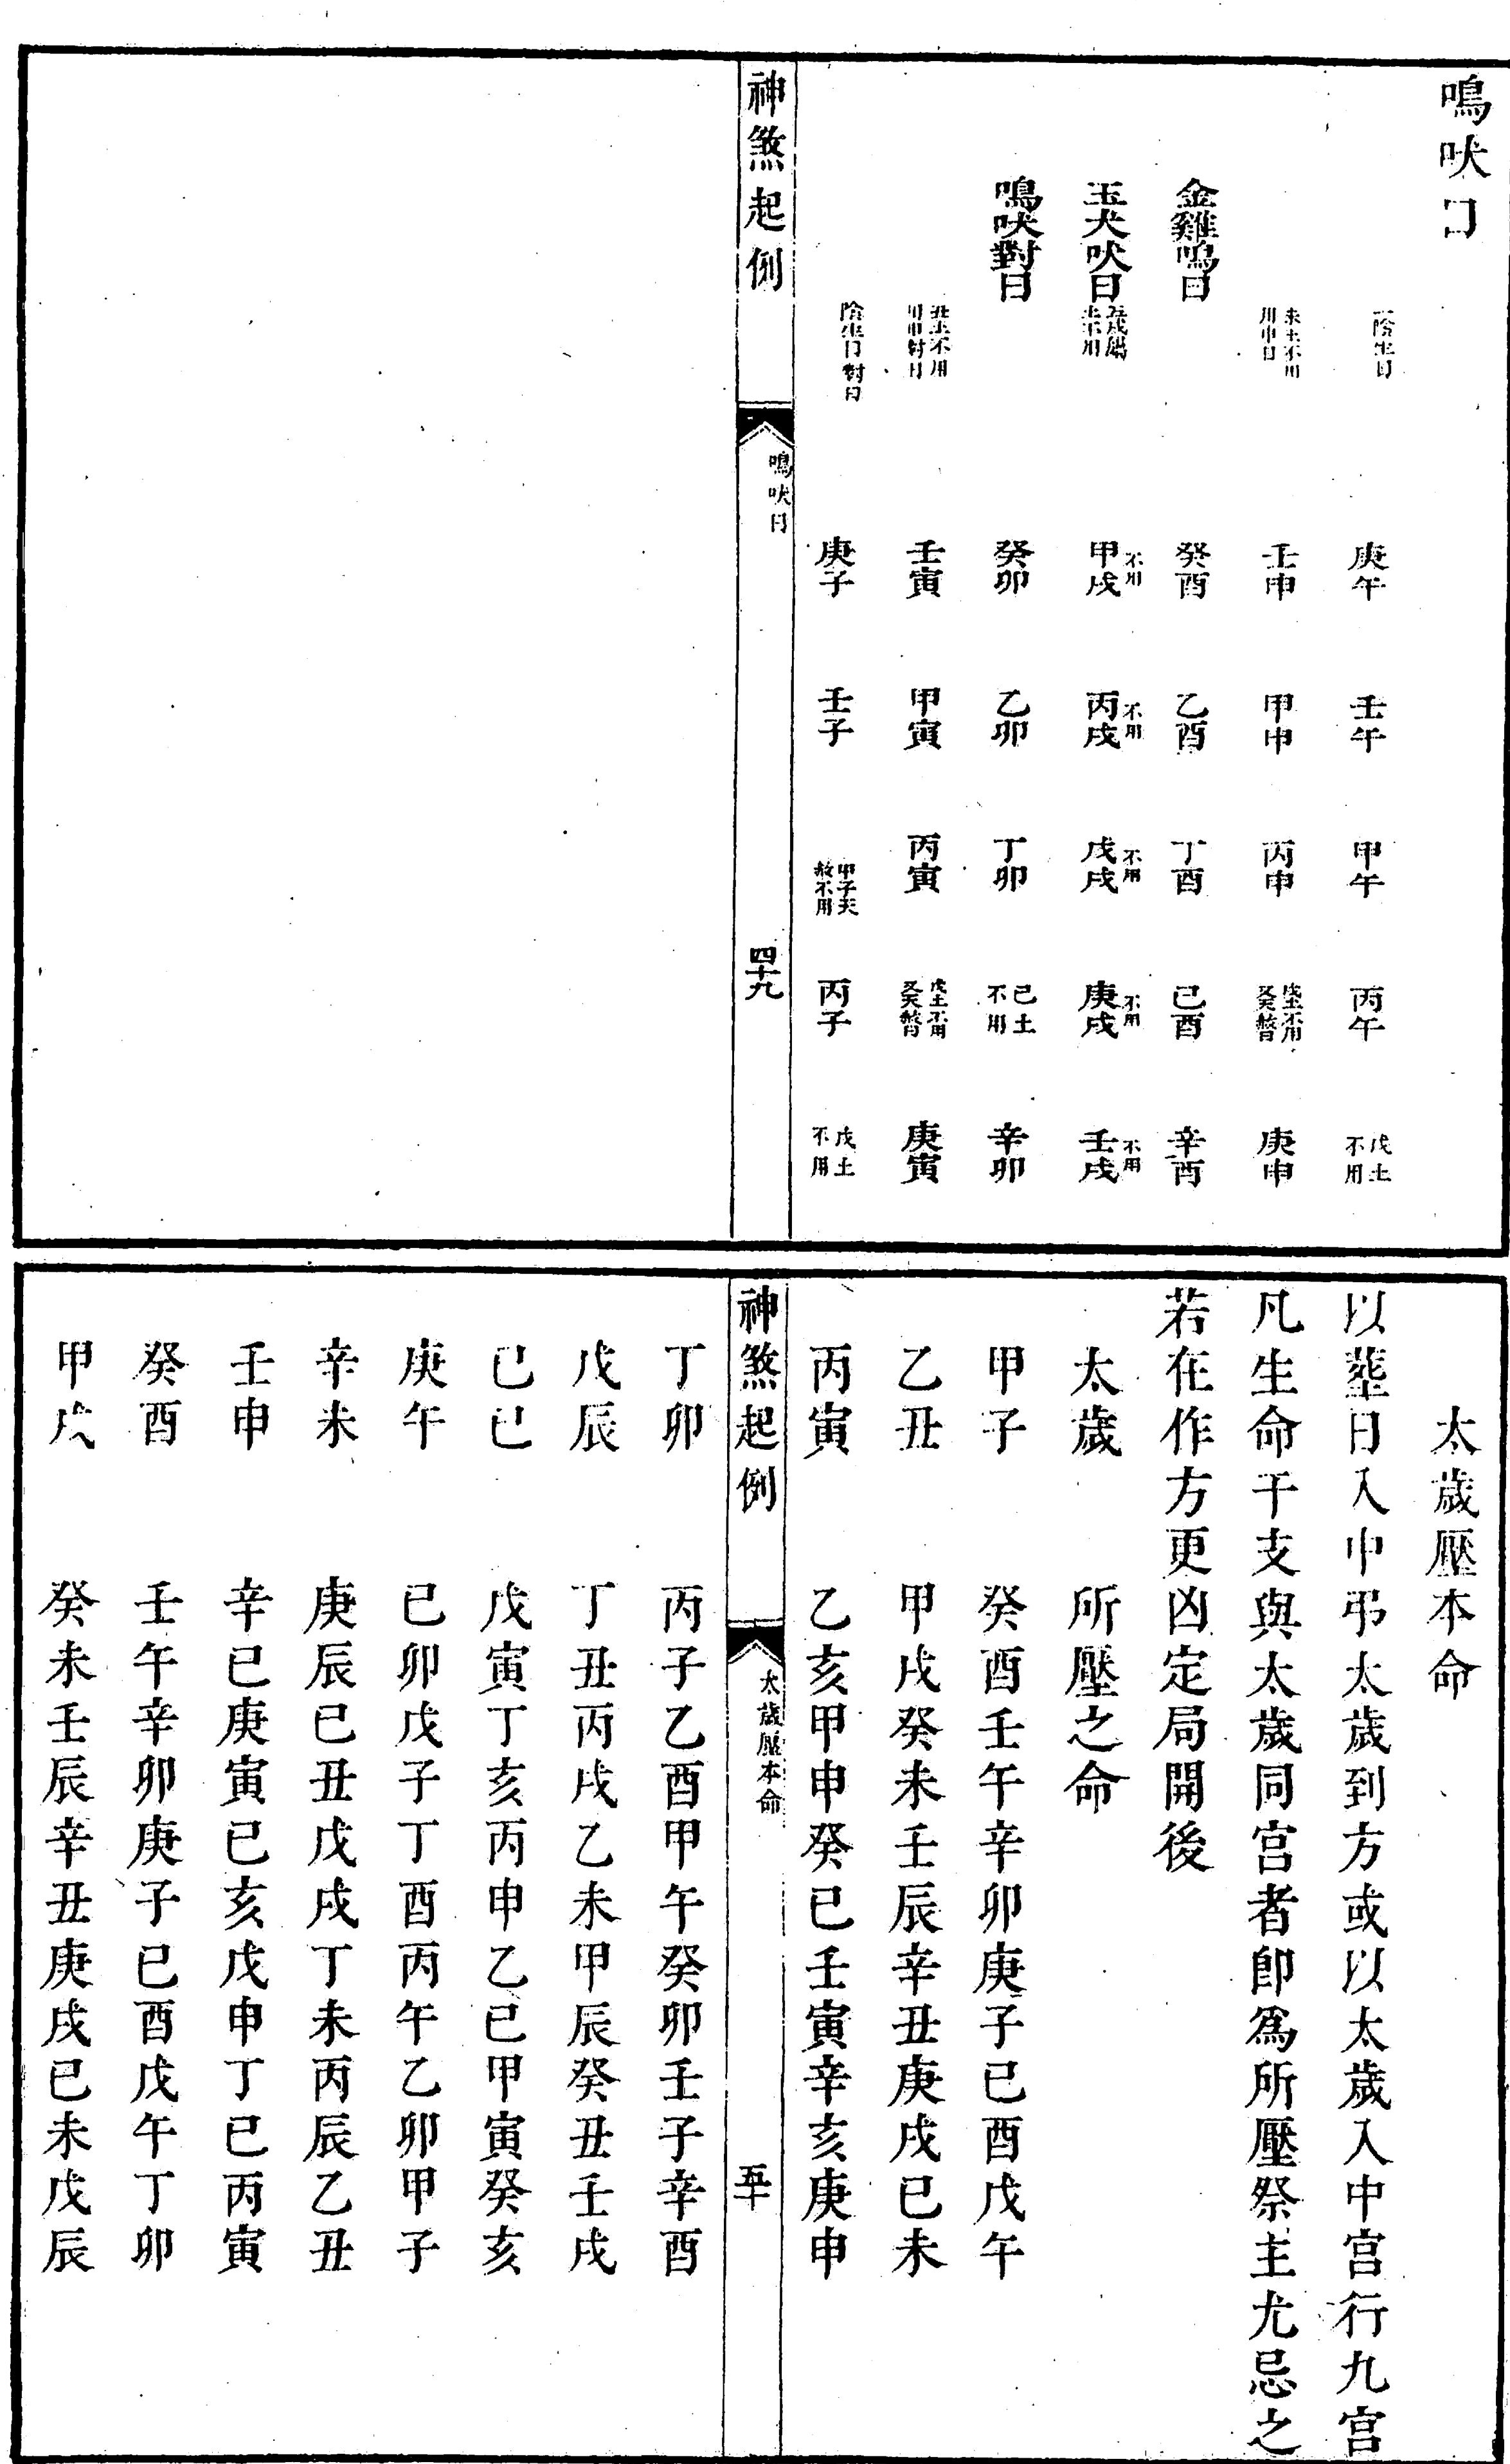 鳴吠日
一陰生日 庚午 壬午 甲午 丙午 戊土不用
未土不用用申日 壬申 甲申 丙申 戊土不用又天瞽 庚申
金雞鳴日 癸酉 乙酉 丁酉 己酉 辛酉
玉犬吠日 甲戌不用 丙戌不用 戊戌不用 庚戌不用 壬戌不用
鳴吠對日 癸卯 乙卯 丁卯 己土不用 辛卯
丑土不用用申對日 壬寅 甲寅 丙寅 戊土不用又天瞽 庚寅
陰生日對日 庚子 壬子 甲子天赦不用 丙子 戊土不用
神煞起例 鳴吠日 四十九
太歲壓本命
以塟日入中弔太歲到方或以太歲入中宮行九宮
凡生命干支與太歲同宮者卽爲所壓祭主尤忌之
若在作方更凶定局開後
太歲 所壓之命
甲子 癸酉壬午辛卯庚子己酉戊午
乙丑 甲戌癸未壬辰辛丑庚戌己未
丙寅 乙亥甲申癸巳壬寅辛亥庚申
神煞起例 太歲壓本命 五十
丁卯 丙子乙酉甲午癸卯壬子辛酉
戊辰 丁丑丙戌乙未甲辰癸丑壬戌
己巳 戊寅丁亥丙申乙巳甲寅癸亥
庚午 己卯戊子丁酉丙午乙卯甲子
辛未 庚辰己丑戊戌丁未丙辰乙丑
壬申 辛巳庚寅己亥戊申丁巳丙寅
癸酉 壬午辛卯庚子己酉戊午丁卯
甲戌 癸未壬辰辛丑庚戌己未戊辰